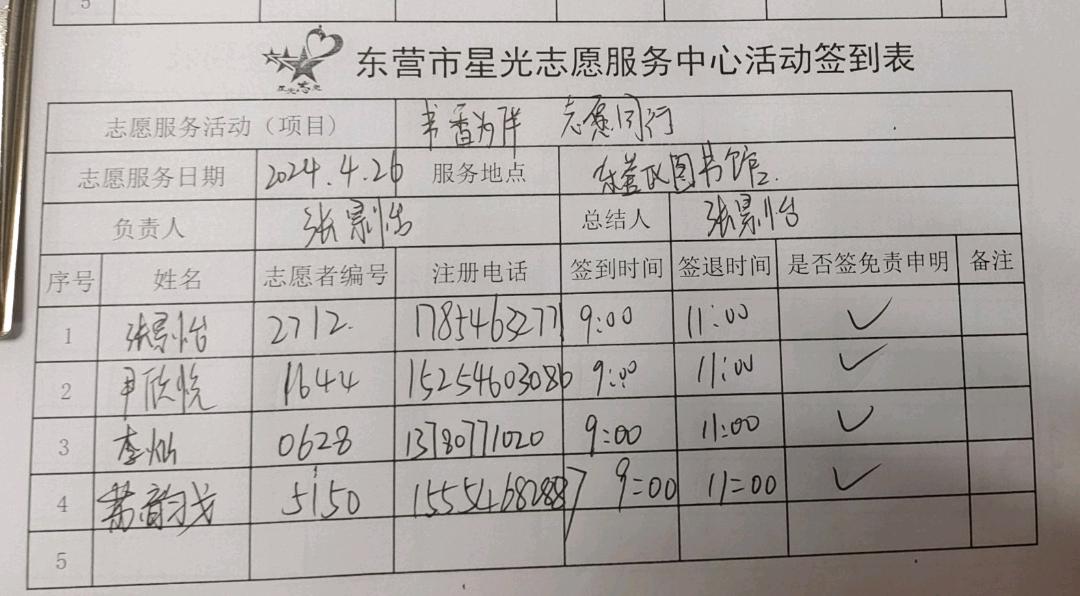 5
东营市星光志愿服务中心活动签到表
志愿服务活动（项目） 书香为伴 志愿同行
志愿服务日期 2024.4.26 服务地点 东营区图书馆.
负责人 张景怡 总结人 张景怡
序号 姓名 志愿者编号 注册电话 签到时间 签退时间 是否签免责申明 备注
1 张景怡 2712. 17854632771 9:00 11:00 ✓
2 尹欣悦 1644 15254603086 9:00 11:00 ✓
3 李灿 0628 13780771020 9:00 11:00 ✓
4 5150 9:00 11:00 ✓
5